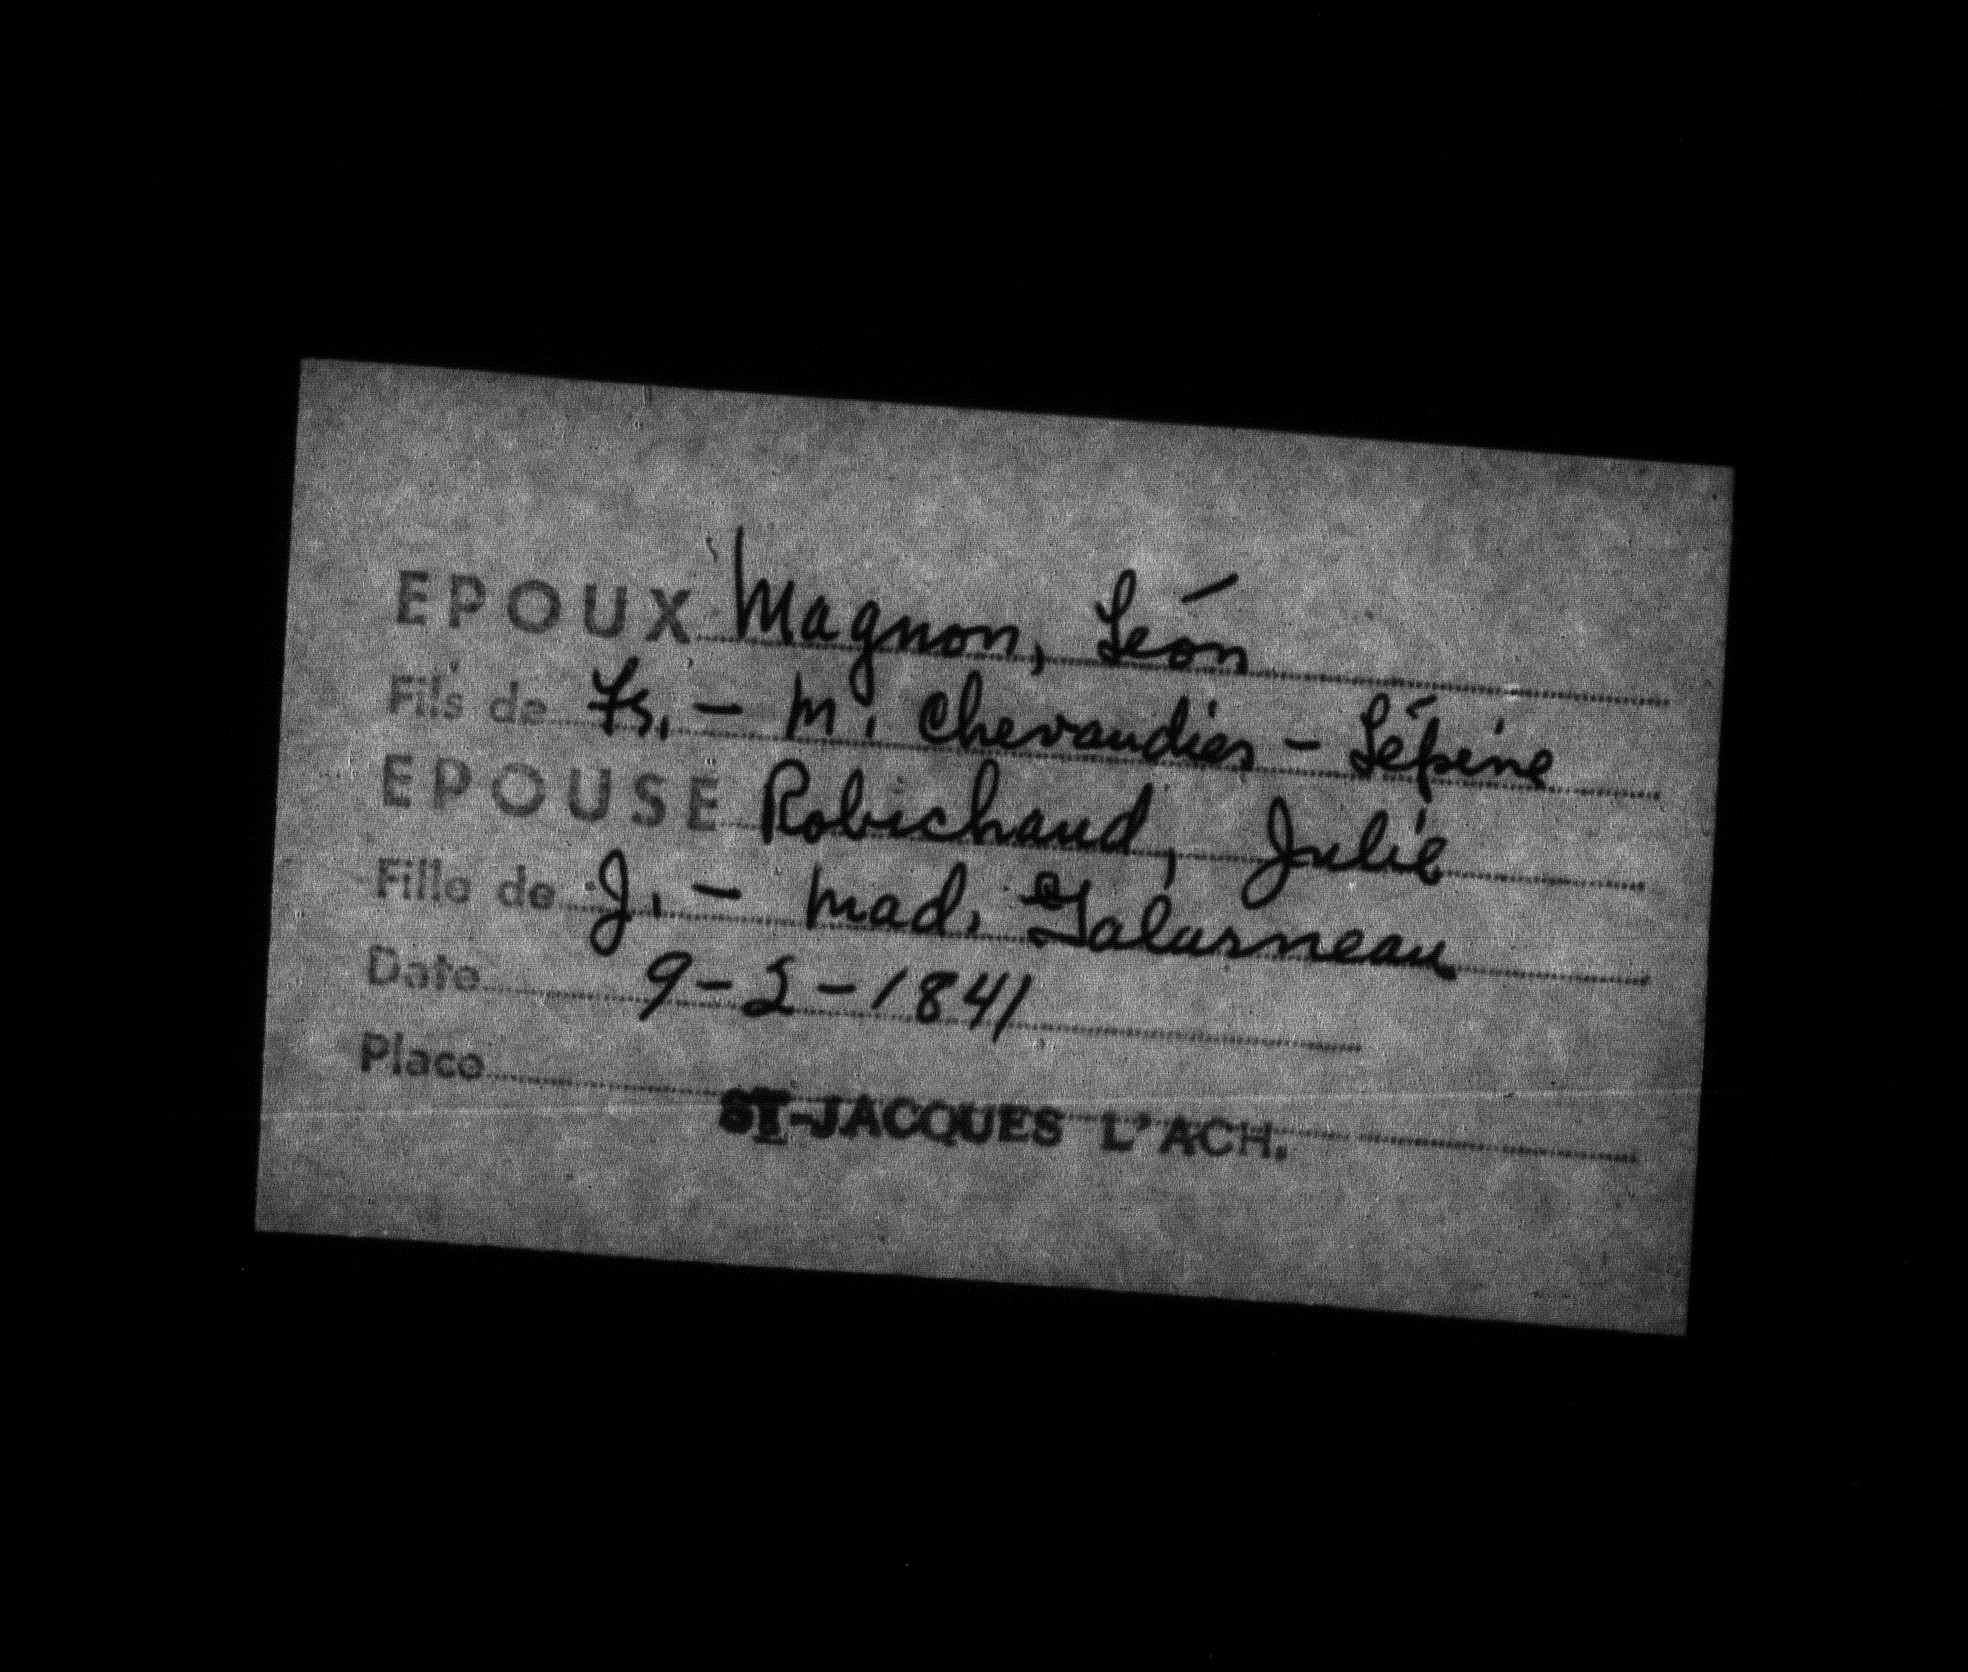 EPOUX Magnon, Léon
Fils de Fs. - M. Chevaudier - Lépine
EPOUSE Robichaud, Julie
Fille de J. - Mad. Galarneau
Date 9-2-1841
Place ST-JACQUES L'ACH.